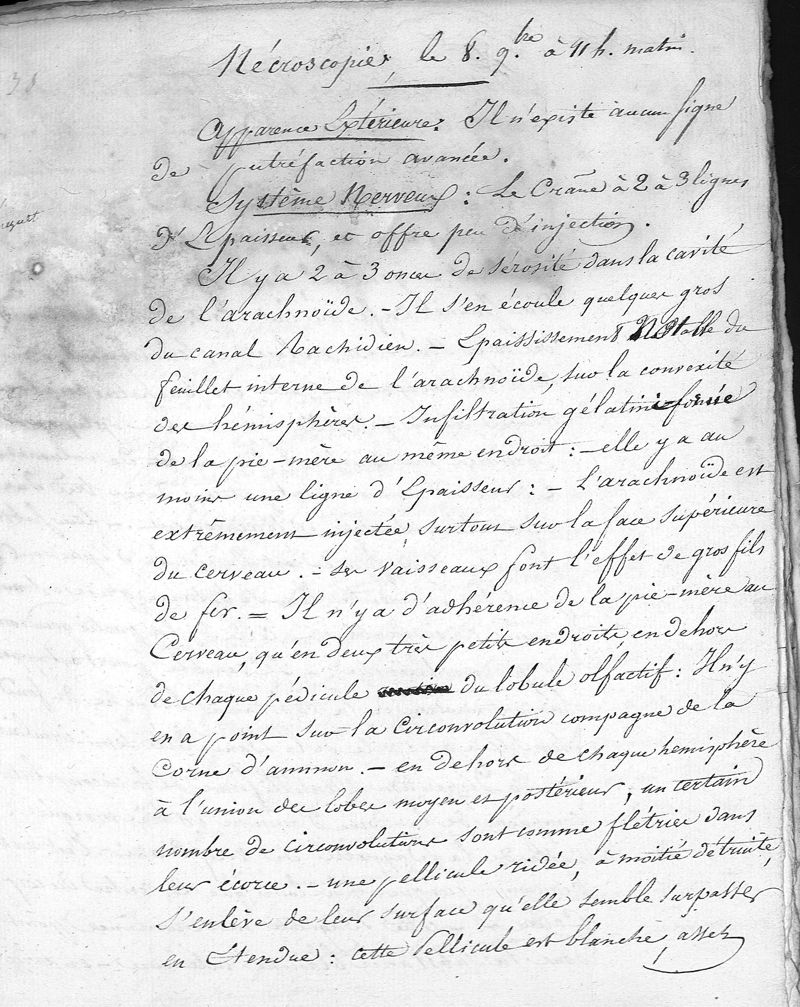 Nécroscopie, le 8. 9.bre à 11 h. matin.
Apparence Extérieure. Il n'existe aucun signe
de putréfaction avancée.
Système Nerveux : Le Crâne à 2 à 3 lignes
d'Epaisseur, et offre peu d'injection.
Il y a 2 à 3 onces de sérosité dans la cavité
de l'arachnoïde. - Il s'en écoule quelques gros
du canal Rachidien. - Epaississement du
feuillet interne de l'arachnoïde, sur la convexité
des hémisphères. - Infiltration gélatiniforme
de la pie-mère au même endroit : - elle y a au
moins une ligne d'Epaisseur : - L'arachnoïde est
extrêmement injectée, surtout sur la face supérieure
du cerveau. - ses vaisseaux font l'effet de gros fils
de fer. = Il n'y a d'adhérence de la pie-mère au
Cerveau, qu'en deux très petits endroits, en dehors
de chaque pédicule du lobule olfactif : Il n'y
en a point sur la circonvolution compagne de la
Corne d'ammon. - en dehors de chaque hemisphère
à l'union des lobes moyen et postérieur, un certain
nombre de circonvolutions sont comme flétries dans
leur écorce. - une pellicule ridée, à moitié détruite,
s'enlève de leur surface qu'elle semble surpasser
en Etendue : cette Pellicule est blanche, assez